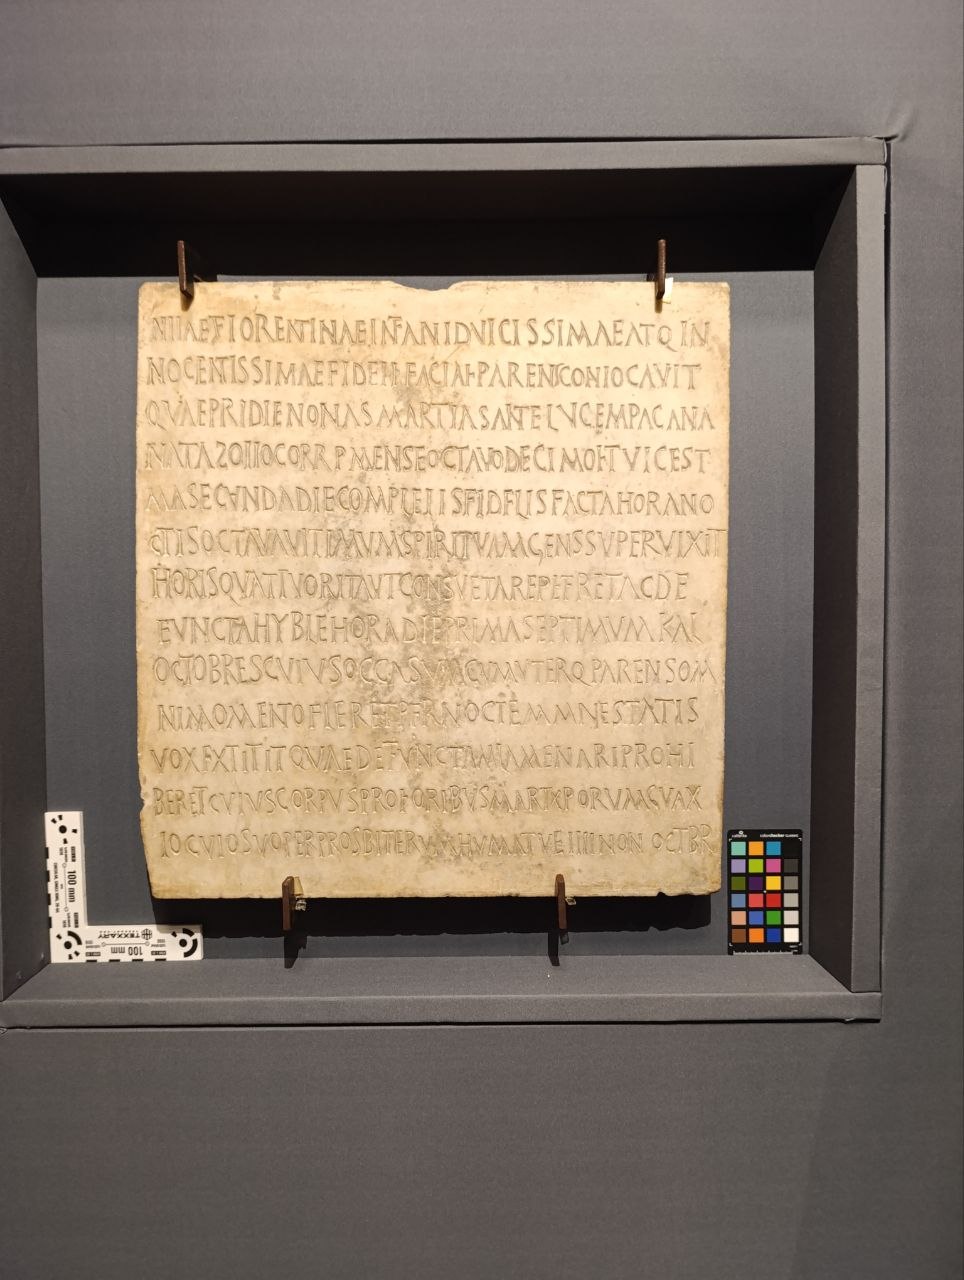 NIIAE FIORENTINAE INFANI DVICISSIMAE ATQ IN
NOCENTISSIMAE FIDELI FACIAI PARENS CONIOCAVIT
QVAE PRIDIE NONAS MARTIAS ANTE LVCEM PACANA
NATA ZOIIO CORR P MENSE OCTAVO DECIMO ET VICEST
MA SECVNDA DIE COMPLEIIS FIDELIS FACTA HORA NO
CTIS OCTAVA VITIMVM SPIRITVM AGENS SVPERVIXIT
HORIS QVATTVOR ITA VT CONSVETA REPETERET AC DE
FVNCTA HYBLE HORA DIE PRIMA SEPTIMVM KAL
OCTOBRES CVIVS OCCASVM CVM VTERQ PARENS OM
NI MOMENTO FLERET PER NOCTEM MAIESTATIS
VOX EXTITIT QVAE DEFVNCTAM LAMENARI PROHI
BERET CVIVS CORPVS PRO FORIBVS MARTXPORVM CVAX
IOCVIO SVO PER PROSBITERVM HVMATV E IIII NON OCTBR
100 mm
TEXXARY
100 mm